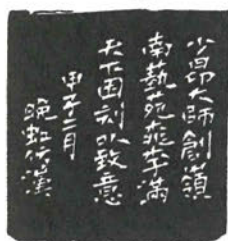 少昂大師創嶺
南藝苑桃李滿
天下因刻以致意
甲子二月
晚漢